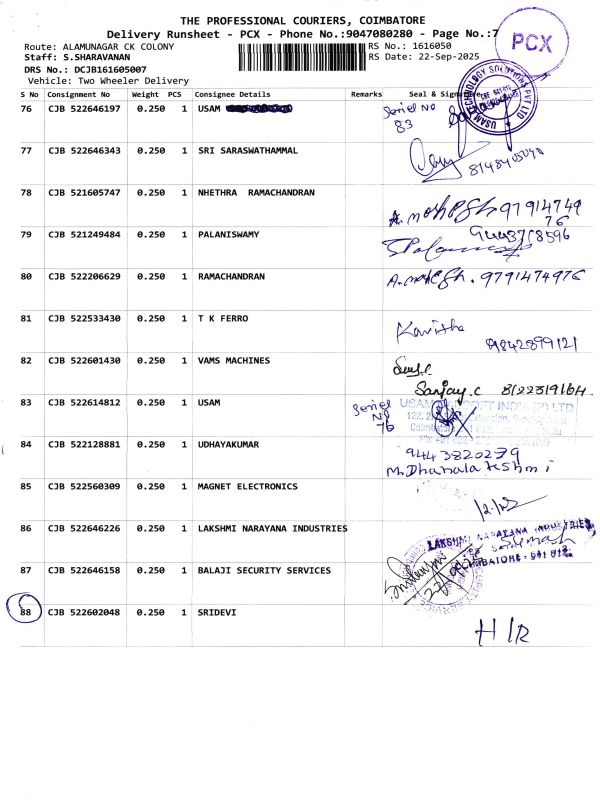 THE PROFESSIONAL COURIERS, COIMBATORE
Delivery Runsheet - PCX - Phone No.:9047080280 - Page No.:7
PCX
Route: ALAMUNAGAR CK COLONY
RS No.: 1616050
Staff: S.SHARAVANAN
RS Date: 22-Sep-2025
DRS No.: DCJB161605007
Vehicle: Two Wheeler Delivery
S No Consignment No Weight PCS Consignee Details Remarks Seal & Signature
76 CJB 522646197 0.250 1 USAM Seriel No
83
77 CJB 522646343 0.250 1 SRI SARASWATHAMMAL
78 CJB 521605747 0.250 1 NHETHRA RAMACHANDRAN
A. mohesh 97914749
76
79 CJB 521249484 0.250 1 PALANISWAMY
80 CJB 522206629 0.250 1 RAMACHANDRAN A. mohesh. 9791474976
81 CJB 522533430 0.250 1 T K FERRO
Kavitha
9842899121
82 CJB 522601430 0.250 1 VAMS MACHINES
Sanjay.C
83 CJB 522614812 0.250 1 USAM Seriel No
76
84 CJB 522128881 0.250 1 UDHAYAKUMAR
9443820279
M. Dhanalakshmi
85 CJB 522560309 0.250 1 MAGNET ELECTRONICS
86 CJB 522646226 0.250 1 LAKSHMI NARAYANA INDUSTRIES
LAKSHMI NARAYANA INDUSTRIES
87 CJB 522646158 0.250 1 BALAJI SECURITY SERVICES
88 CJB 522602048 0.250 1 SRIDEVI
H/R